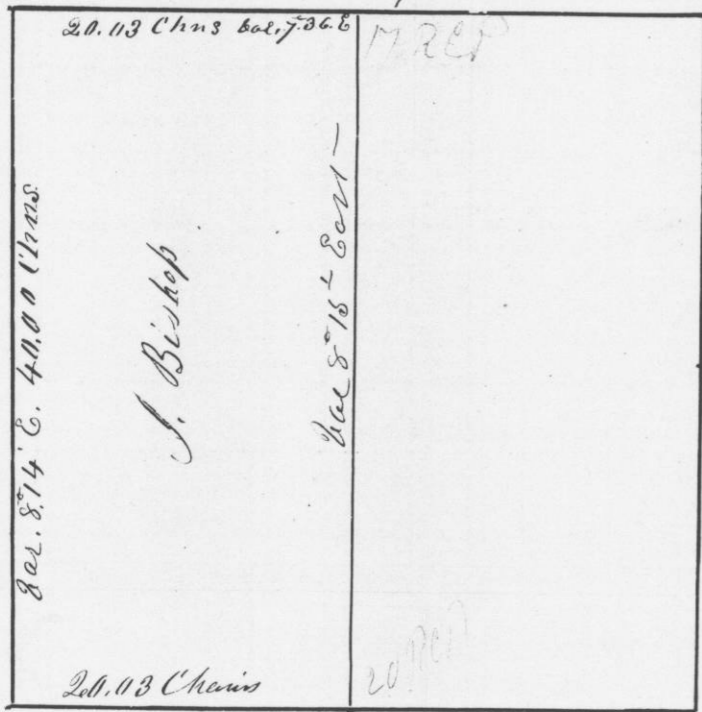 20.03 Chns var. 7.36. E
Var. 8°14' E. 40.00 Chns.
J. Bishop.
Var 8° 15' East
20.03 Chains